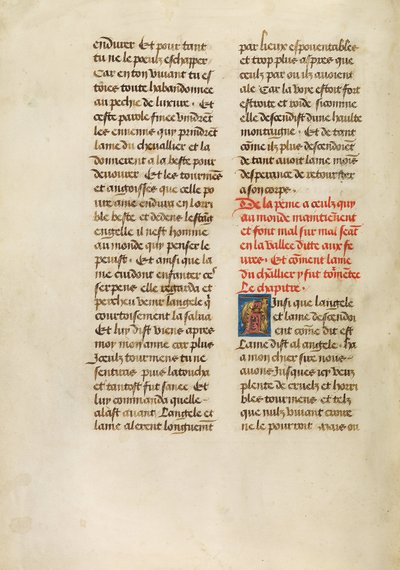 endurer Et pour tant
tu ne le poeulz eschapper
Car en ton viuant tu es
toies toute habandonnee
au pechie de luxure · Et
ceste parole finee vindrent
les ennemis quy prindrent
lame du chevallier et la
donnerent a la beste pour
deuourer Et les tourmens
et angoisses que celle po
ure ame endura en lorri
ble beste et dedens lestang
engelle il nest homme
au monde quy penser le
peuist · Et ainsi que la
me cuidoit enfanter ces
serpens elle regarda et
percheu venir langele qui
courtoisement la salua
Et luy dist viens apres
moy mon amie car plus
Jceulz tourmens tu ne
sentiras puis latoucha
et tantost fut sanee Et
luy commanda quelle
alast auant Langele et
lame alerent longuement
par lieux espouentables
et trop plus aspres que
ceulz par ou ilz auoient
ale Car la voye estoit fort
estroite et roide si comme
elle descendist dune haulte
montaigne · Et de tant
come ilz plus descendoient
de tant auoit lame mois
desperance de retourner
a son corps ·
De la peine a ceulz quy
au monde maintienent
et font mal sur mal seant
en la vallee ditte aux fe
ures · Et coment lame
du chlier y fut tormetee
Le chapitre ·
Ainsi que langele
et lame descendoi
ent come dit est
Lame dist al angele · ha
a mon chier sire nous
auons Jusques icy veux
plente de cruelz et horri
bles tourmens et telz
que nulz viuant croire
ne le pourroit mais ou